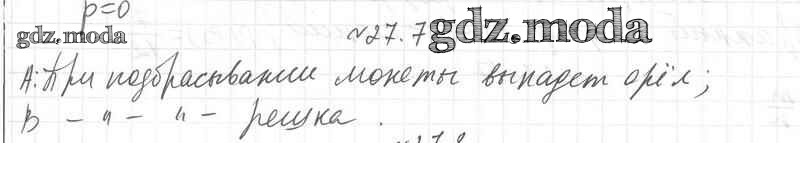 p=0
gdz.moda №27.7 gdz.moda
А: При подбрасывании монеты выпадет орёл;
В – " – " – решка.